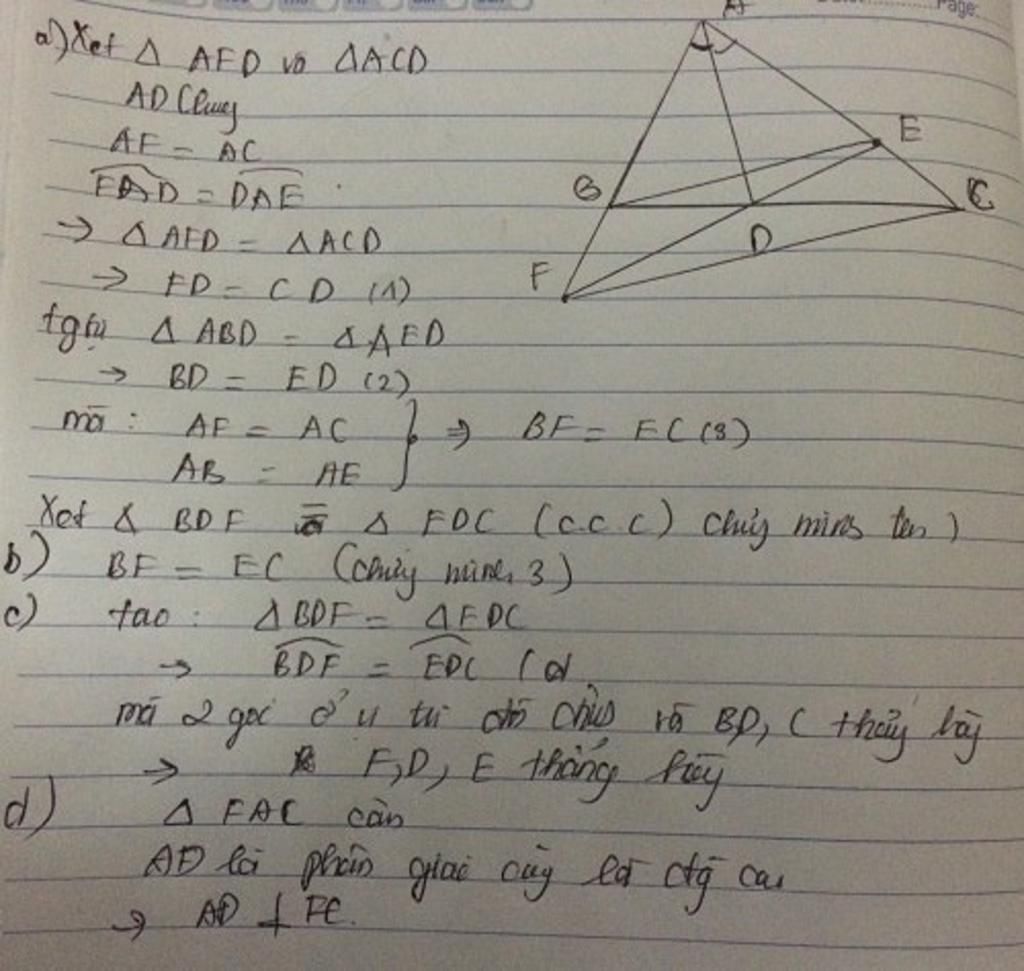 a) Xet Δ AFD và ΔACD
AD Chung
AF = AC
FAD = DAE
→ Δ AFD = ΔACD
→ FD = CD (1)
tg tự Δ ABD = ΔAED
→ BD = ED (2)
mà : AF = AC
AB = AE
} ⇒ BF = EC (3)
Xet Δ BDF = Δ EDC (c.c.c) chứng minh trên )
b) BF = EC (chứng minh 3)
c) ta có : ΔBDF = ΔEDC
→ BDF = EDC (
mà 2 góc ở vị trí đối đỉnh và BD, C thẳng hàng
→ F, D, E thẳng hàng
d) Δ FAC cân
AD là phân giác cũng là đg cao
→ AD ⊥ FC.
A
B
E
C
D
F
Page: